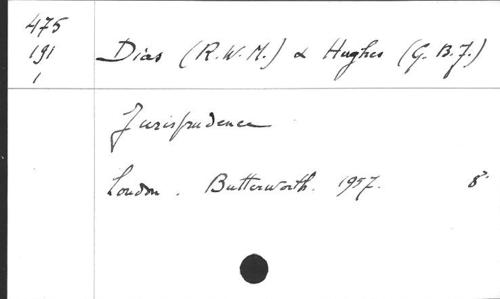 475
191
1
Dias (R.W.M.) & Hughes (G.B.J.)
Jurisprudence
London. Butterworth. 1957. 8°